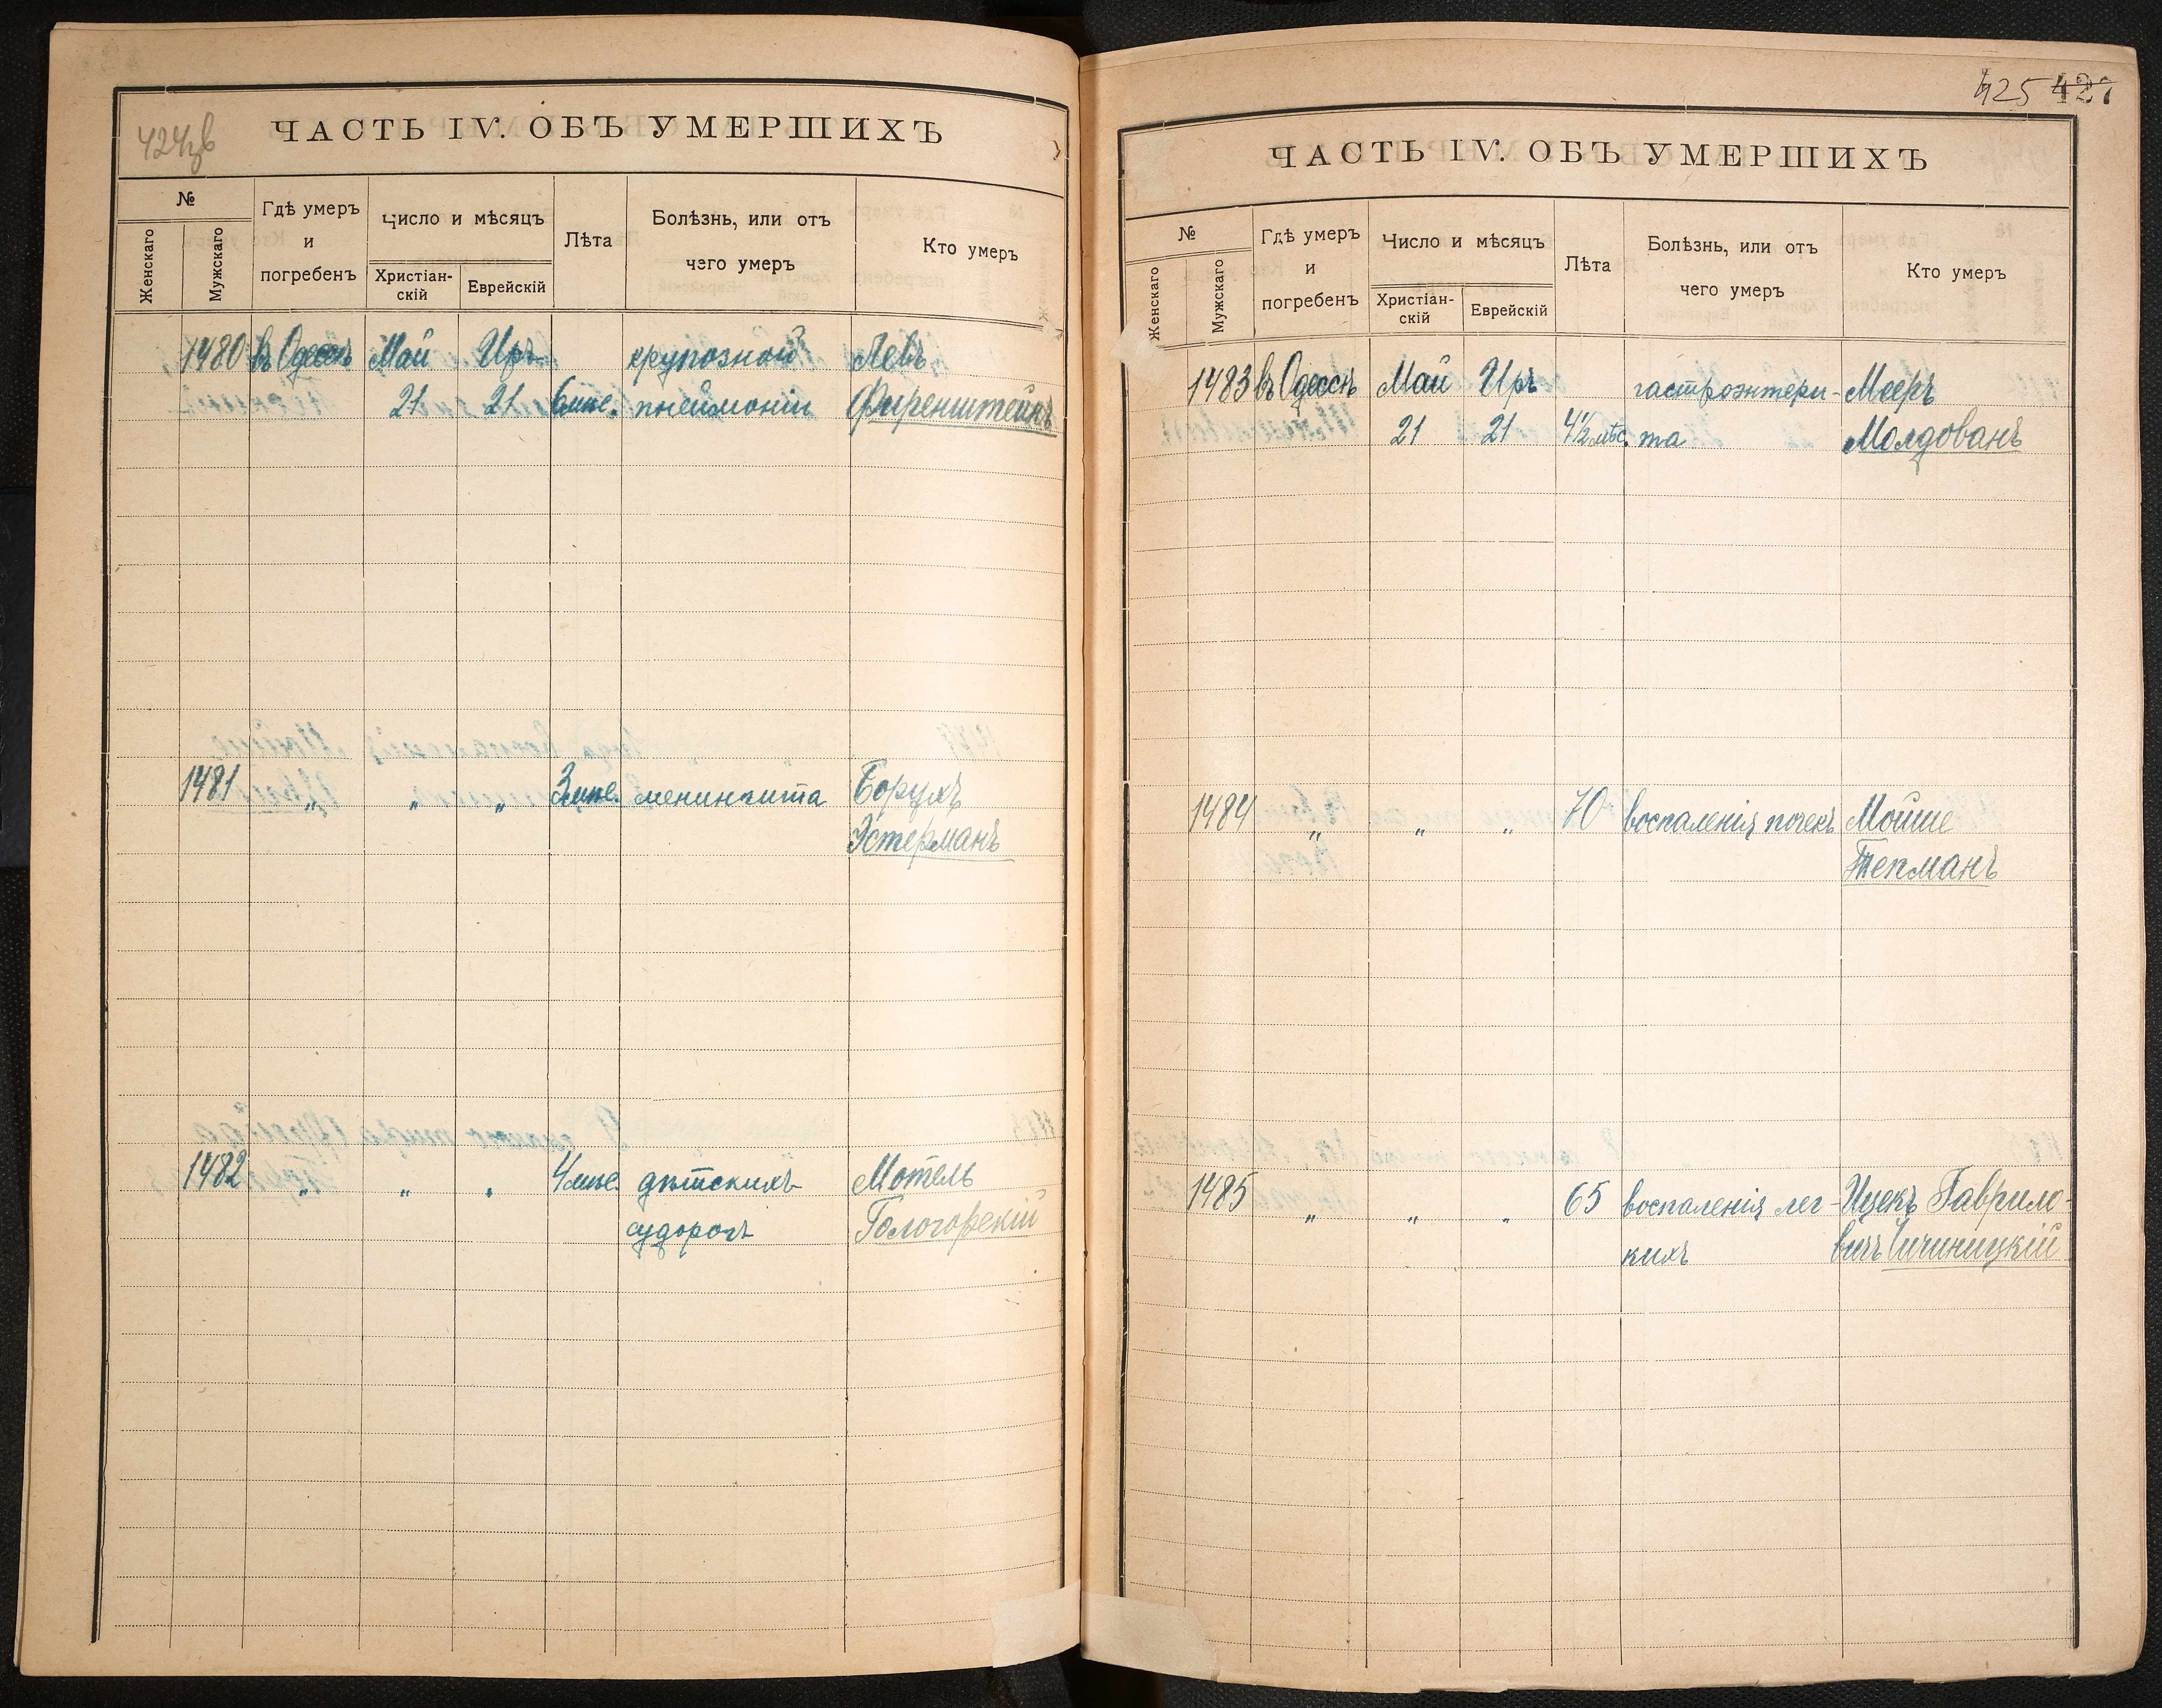 424зв
ЧАСТЬ IV. ОБЪ УМЕРШИХЪ
№
Женскаго
Мужскаго
Гдѣ умеръ
и
погребенъ
Число и мѣсяцъ
Христіан-
скій
Еврейскій
Лѣта
Болѣзнь, или отъ
чего умеръ
Кто умеръ
1480 въ Одессѣ Май Иръ крупозной Левъ
21 21 6 мѣс. пнеймоніи Фиренштейнъ
1481 „ „ „ 3 мѣс. менингита Борухъ
Эстерманъ
1482 „ „ „ 4 мѣс. дѣтскихъ Мотель
судорогъ Гологорскій
425 427
ЧАСТЬ IV. ОБЪ УМЕРШИХЪ
№
Женскаго
Мужскаго
Гдѣ умеръ
и
погребенъ
Число и мѣсяцъ
Христіан-
скій
Еврейскій
Лѣта
Болѣзнь, или отъ
чего умеръ
Кто умеръ
1483 въ Одессѣ Май Иръ гастроэнтери- Мееръ
21 21 4½ мѣс. та Молдованъ
1484 „ „ „ 70 воспаленія почекъ Мойше
Тепманъ
1485 „ „ „ 65 воспаленія лег- Ицекъ Гаврило-
кихъ вичъ